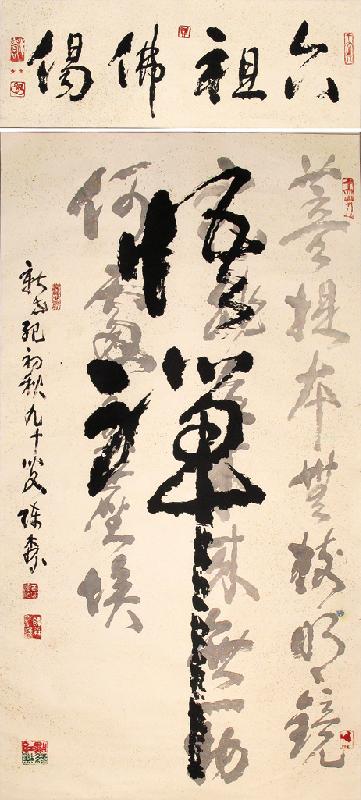 六祖佛偈
菩提本無樹明鏡
亦非臺本来無一物
何處惹塵埃
悟禅
新世纪初秋九十叟